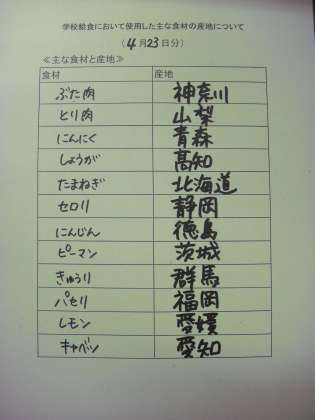 学校給食において使用した主な食材の産地について
(4月23日分)
≪主な食材と産地≫
食材 産地
ぶた肉 神奈川
とり肉 山梨
にんにく 青森
しょうが 高知
たまねぎ 北海道
セロリ 静岡
にんじん 徳島
ピーマン 茨城
きゅうり 群馬
パセリ 福岡
レモン 愛媛
キャベツ 愛知